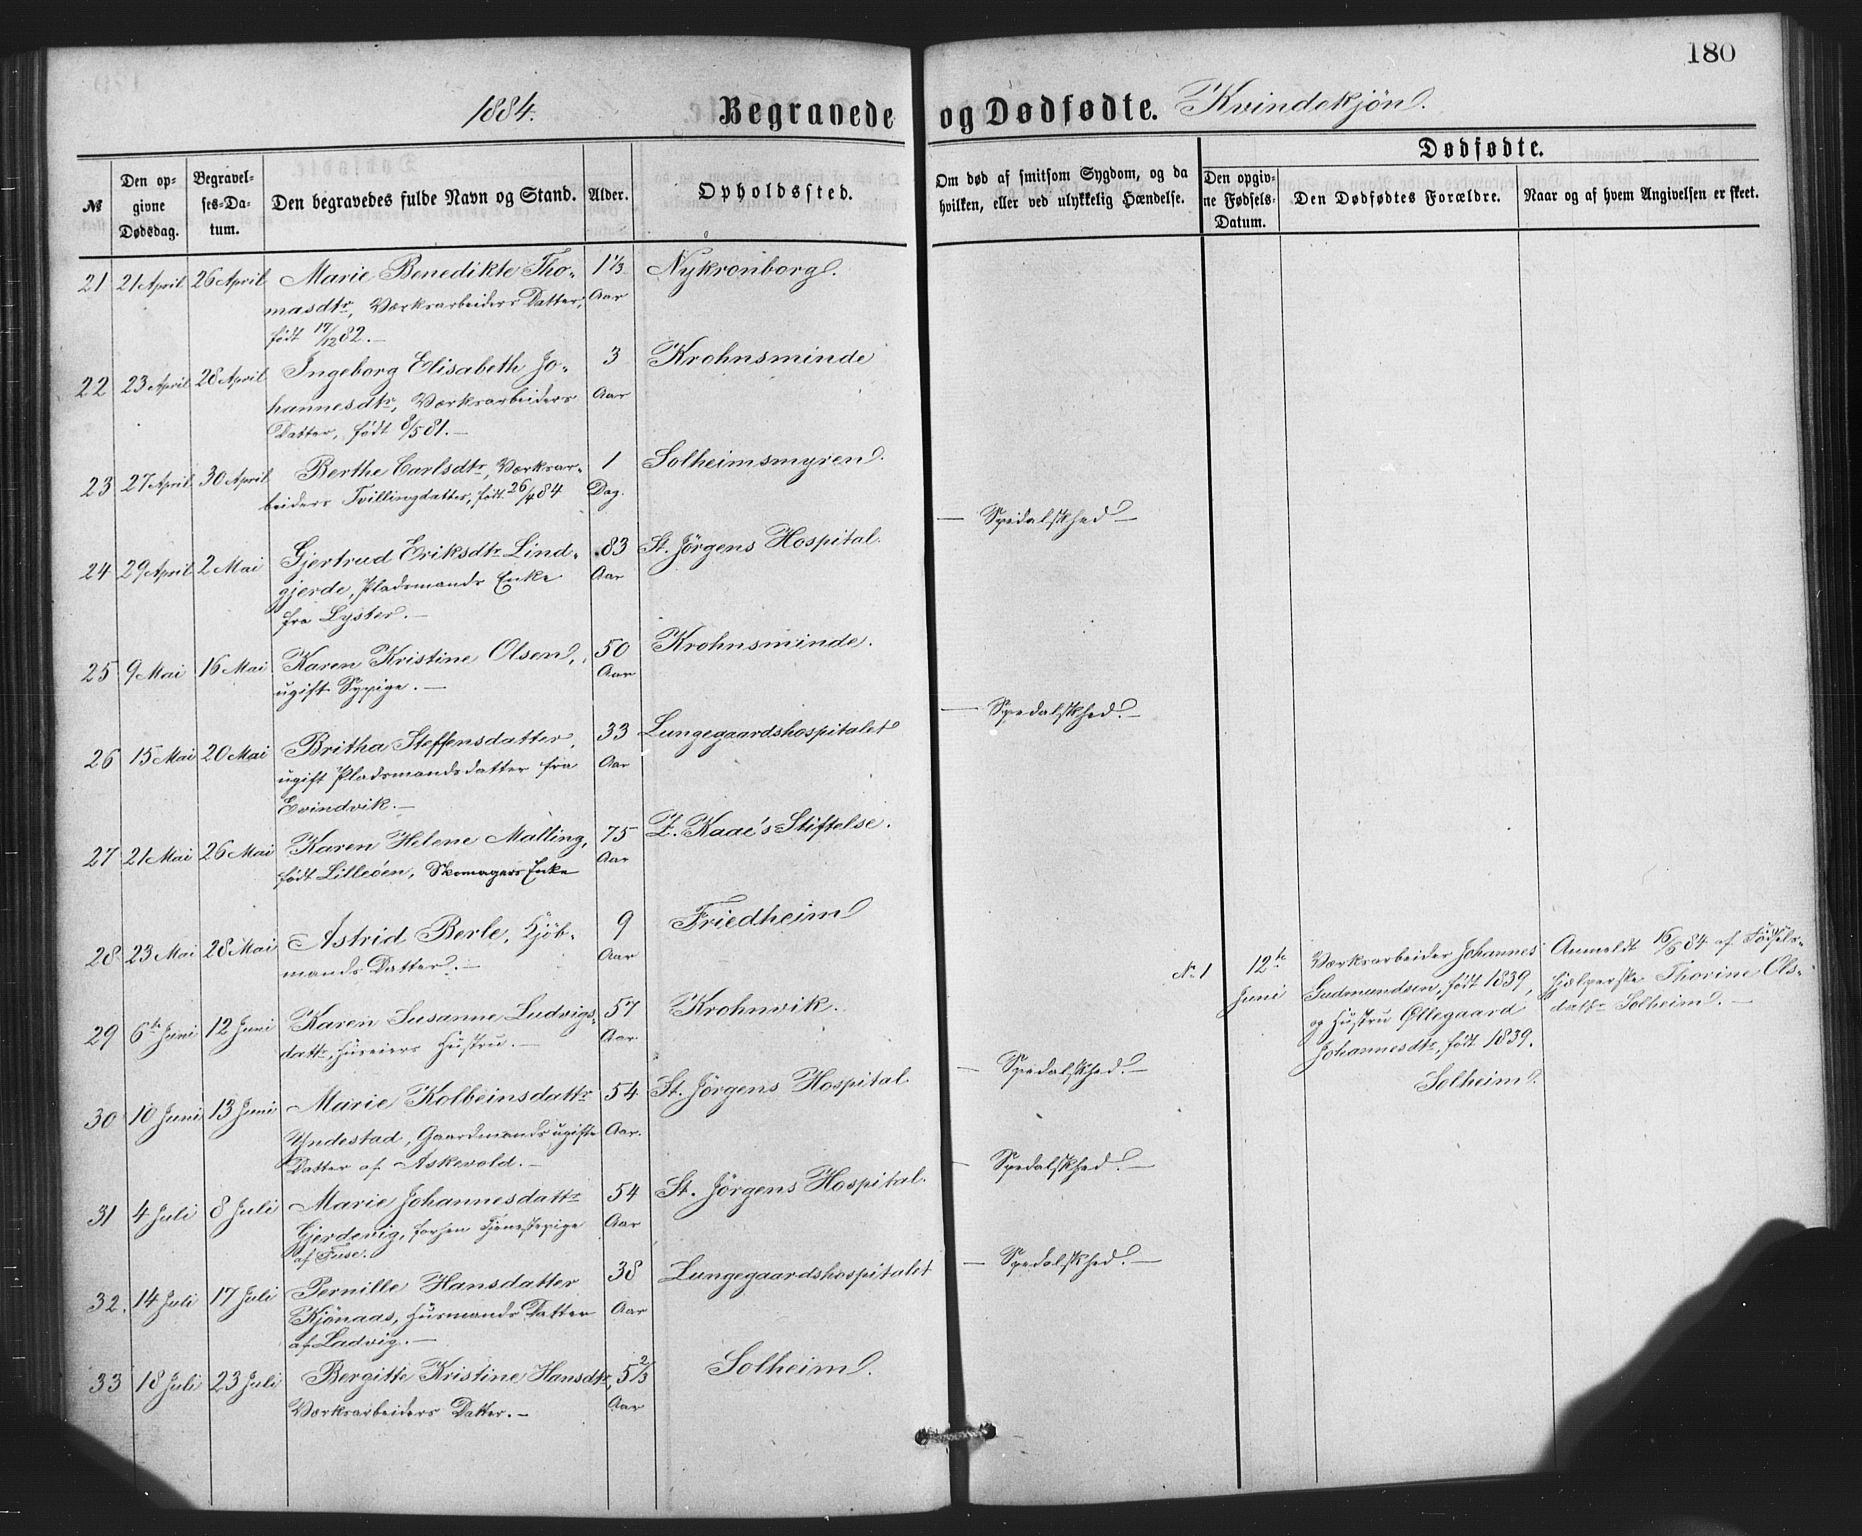 180
1884.
Begravede og Dødfødte. Kvindekjön.
№
Den opgivne Dødsdag.
Begravelses-Datum.
Den begravedes fulde Navn og Stand.
Alder.
Opholdssted.
Om død af smitsom Sygdom, og da hvilken, eller ved ulykkelig Hændelse.
Dødfødte.
Den opgivne Fødsels-Datum.
Den Dødfødtes Forældre.
Naar og af hvem Angivelsen er skeet.
21 21 April 26 April Marie Benedikte Tho- 1 1/3 Nykronborg.
masdtr, Værksarbeiders Datter, Aar
født 17/12 82. —
22 23 April 28 April Ingeborg Elisabeth Jo- 3 Krohnsminde
hannesdtr, Værksarbeiders Aar
Datter, født 8/5 81. —
23 27 April 30 April Berthe Carlsdtr, Værksar- 1 Solheimsmyren.
beiders Tvillingdatter, født 26/4 84 Dag.
24 29 April 2 Mai Gjertrud Eriksdtr Lind- 83 St. Jörgens Hospital. — Spedalskhed —
gjerde, Pladsmands Enke Aar
fra Lyster. —
25 9 Mai 16 Mai Karen Kristine Olsen, 50 Krohnsminde.
ugift Sypige. — Aar
26 15 Mai 20 Mai Britha Steffensdatter, 33 Lungegaardshospitalet — Spedalskhed. —
ugift Pladsmandsdatter fra Aar
Evindvik. —
27 21 Mai 26 Mai Karen Helene Malting, 75 Z. Kaae's Stiftelse.
født Lilleöen, Skomagers Enke Aar
28 23 Mai 28 Mai Astrid Berle, Kjöb- 9 Friedheim
mands Datter. — Aar
29 6te Juni 12 Juni Karen Susanne Ludvigs- 57 Krohnvik.
dattr, Huseiers Hustru. — Aar
30 10 Juni 13 Juni Marie Kolbeinsdattr 54 St. Jörgens Hospital — Spedalskhed. —
Yndestad, Gaardmands ugifte Aar.
Datter af Askevold. —
31 4 Juli 8 Juli Marie Johannesdattr 54 St. Jörgens Hospital. — Spedalskhed. —
Gjerdevig, forhen Tjenestepige Aar
af Fuse.
32. 14 Juli 17 Juli Pernille Hansdatter 38 Lungegaardshospitalet — Spedalskhed. —
Kjönaas, Husmands Datter Aar
af Ladvig. —
33 18 Juli 23 Juli Bergitte Kristine Hansdtr, 5 2/3 Solheim.
Værksarbeiders Datter. — Aar
No 1 12te Juni
Værksarbeider Johannes
Gudmundsen, født 1839,
og Hustru Øllegaard
Johannesdtr, født 1839.
Solheim.
Anmeldt 16/6 84 af Födsels-
hjælperske Thorine Ols-
dattr Solheim. —